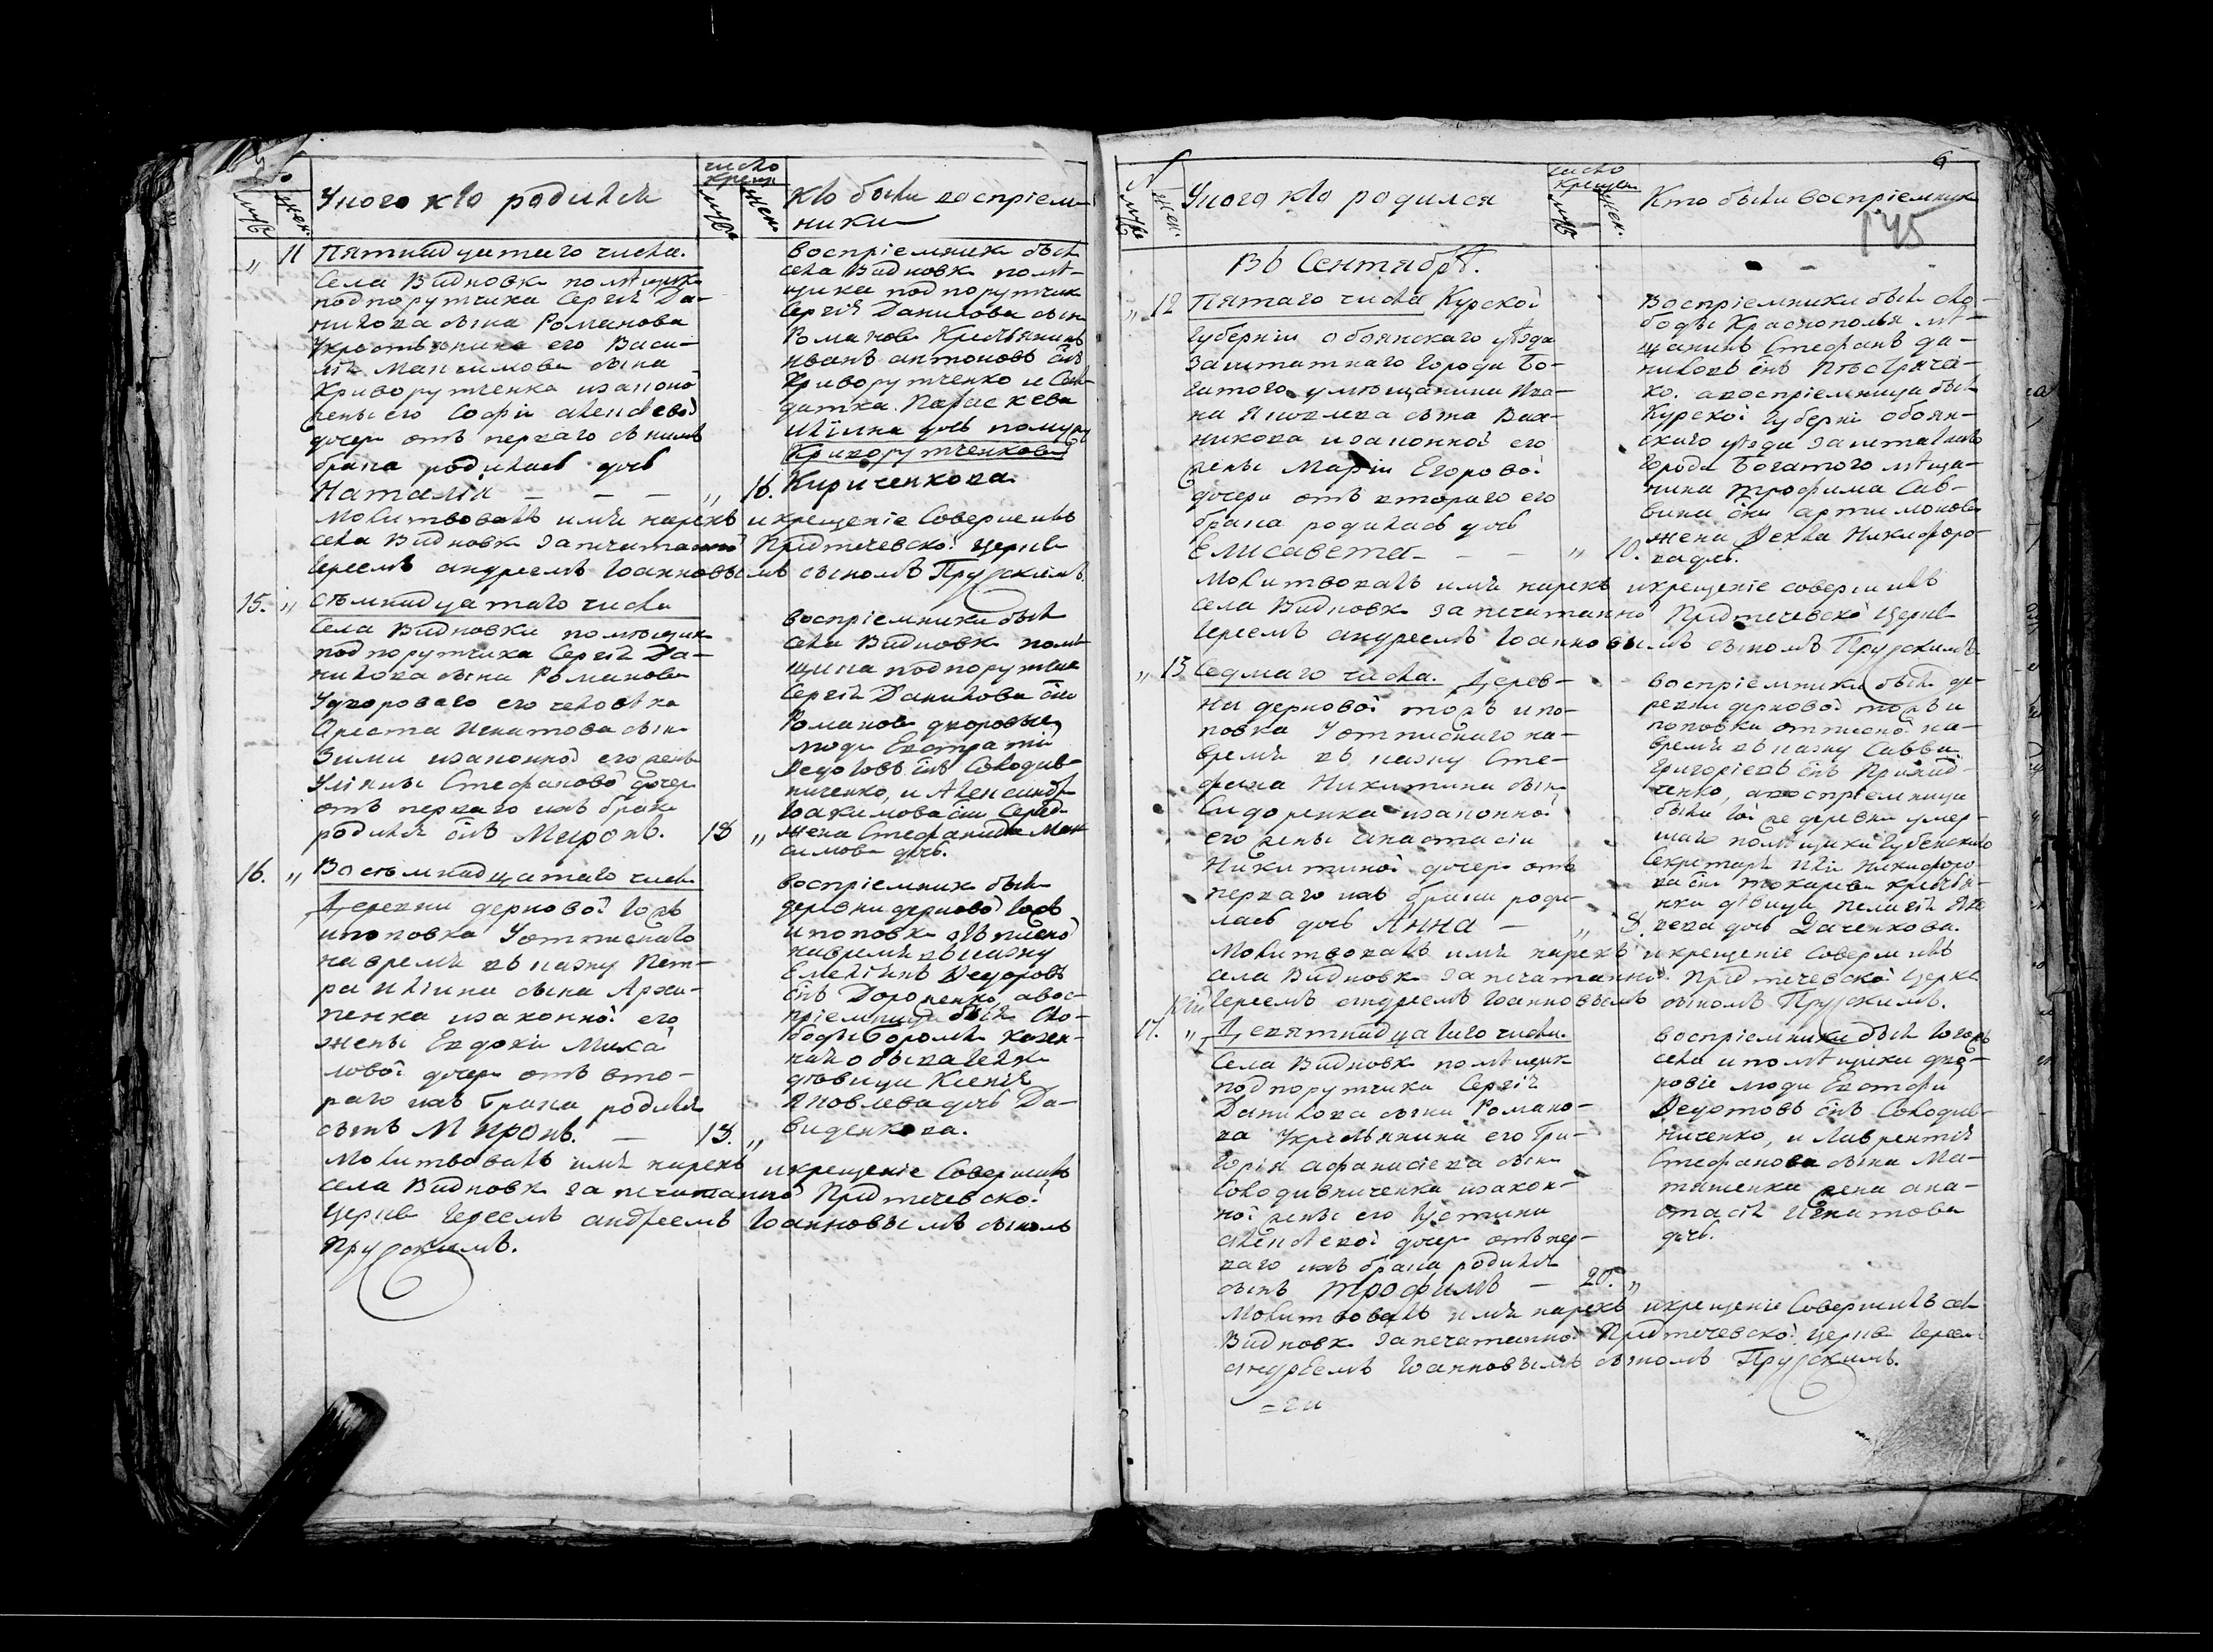 №
муж.
жен.
У кого кто родился
число
крещен
муж.
жен.
Кто были воспріем-
ники
„ 11 Пятнадцатаго числа.
Села Видновки помѣщика
подпоручика Сергія Да-
нилова сына Романова
У крестьянина его Васи-
лія Максимова сына
Криворутченка и законо
жены его Софіи
дочери отъ перваго съ нимъ
брака родилась дочь
Наталія — — — „ 16.
Воспріемники былъ
села Видновки помѣ-
щика подпоручика
Сергія Данилова сына
Романова Крестьянинъ
Иванъ Антоновъ сынъ
Криворутченко и
Параскева
Иліина дочь по мужу
Криворутченкова
Кириченкова.
Молитвовалъ имя нарекъ и крещеніе Совершилъ
села Видновки запечатанной Предтечевской Церкви
Іереемъ Андреемъ Іоанновымъ сыномъ Прускимъ.
15. „ Семнадцатаго числа
Села Видновки помѣщика
подпоручика Сергія Да-
нилова сына Романова
У двороваго его человѣка
Ореста Игнатова сына
Зимы и законной его жены
Уліяны Стефановой дочери
отъ перваго ихъ брака
родился сынъ Миронъ. 18 „
Воспріемники были
села Видновки помѣ
щика подпоручика
Сергія Данилова сына
Романова дворовые
люди Евстратій
Ѳедотовъ сынъ Солодив-
ниченко, и Александр
Іоакимова сына
жена Стефанида Мак
симова дочь.
16. „ Восемнадцатаго числа
Деревни дерновой тожъ
и поповка У отписнаго
на время въ казну Пет-
ра Иліина сына Архи-
пенка и законной его
жены Евдокіи Михай
ловой дочери отъ вто-
раго ихъ брака родился
сынъ Миронъ. — 18. „
Воспріемник былъ
деревни дерновой тожъ
и поповка отписной
на время въ казну
Емеліянъ Ѳедоровъ
сынъ Дороженко, а вос-
пріемница была сло-
боды Боромли казен-
наго обывателя
дѣвица Ксенія
Яковлева дочь Да-
виденкова.
Молитвовалъ имя нарекъ и крещеніе Совершилъ
села Видновки запечатанной Предтечевской
Церкви Іереемъ Андреемъ Іоанновымъ сыномъ
Прускимъ.
№
муж.
жен.
У кого кто родился
число
крещен
муж.
жен.
Кто были воспріемники
6
145
Въ Сентябрѣ.
„ 12 Пятаго числа Курской
Губерніи Обоянскаго уѣзда
Заштатнаго Города Бо-
гатого у мѣщанина Ива-
на Яковлева сына
и законной его
жены Маріи Егоровой
дочери отъ втораго его
брака родилась дочь
Елисавета — — „ 10.
Воспріемники былъ сло-
боды Краснополья мѣ-
щанинъ Стефанъ Да-
ниловъ сынъ
ко. а воспріемница была
Курской Губерніи Обоян-
скаго уѣзда Заштатнаго
Города Богатого мѣща-
нина Трофима Сав-
вина сына Артимонова
жена Ѳекла Никифоро-
ва дочь.
Молитвовалъ имя нарекъ и крещеніе совершилъ
села Видновки запечатанной Предтечевской Церкви
Іереемъ Андреемъ Іоанновымъ сыномъ Прускимъ.
„ 13 Седмаго числа. Дерев-
ни дерновой тожъ и по-
повка У отписнаго на-
время въ казну Сте-
фана Никитина сына
Сидоренка и законной
его жены Анастасіи
Никитиной дочери отъ
перваго ихъ брака роди-
лась дочь Анна — „ 8.
воспріемники былъ де-
ревни дерновой тожъ и
поповки отписной на-
время въ казну Савва
Григоріевъ сынъ
ченко, а воспріемница
была той же деревни умер-
шаго помѣщика Губенскаго
Секретаря Иліи Никифоро
ва сына Токарева крестьян-
ка дѣвица Пелагія Яко
влева дочь Даченкова.
Молитвовалъ имя нарекъ и крещеніе Совершилъ
села Видновки запечатанной Предтечевской Церкви
Іереемъ Андреемъ Іоанновымъ сыномъ Прускимъ.
17. „ Девятнадцатого числа.
Села Видновки помѣщика
подпоручика Сергія
Данилова сына Романо-
ва У крестьянина его Гри-
горія Афанасіева сына
Солодивниченка и закон-
ной жены его Устины
Алексѣевой дочери отъ пер-
ваго ихъ брака родился
сынъ Трофимъ — 20. „
воспріемники были тогожъ
села и помѣщика дво-
ровіе люди Евстафи
Ѳедотовъ сынъ Солодив-
ниченко, и Лаврентія
Стефанова сына Ма-
ташенка жена Ана-
стасія Игнатова
дочь.
Молитвовалъ имя нарекъ и крещеніе Совершилъ села
Видновки запечатанной Предтечевской Церкви Іереем
Андреемъ Іоанновымъ сыномъ Прускимъ.